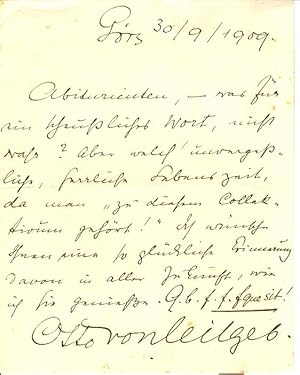 Görz 30/9/1909.
Abiturienten, – was für
ein scheußliches Wort, nicht
wahr? Aber welch' unvergeß-
liche, herrliche Lebenszeit,
da man „zu diesem Collek-
tivum gehört!" Ich wünsche
Ihnen eine so glückliche Erinnerung
davon in aller Zukunft, wie
ich sie genieße. Q. b. f. f. f. que sit!
Otto von Leitgeb.